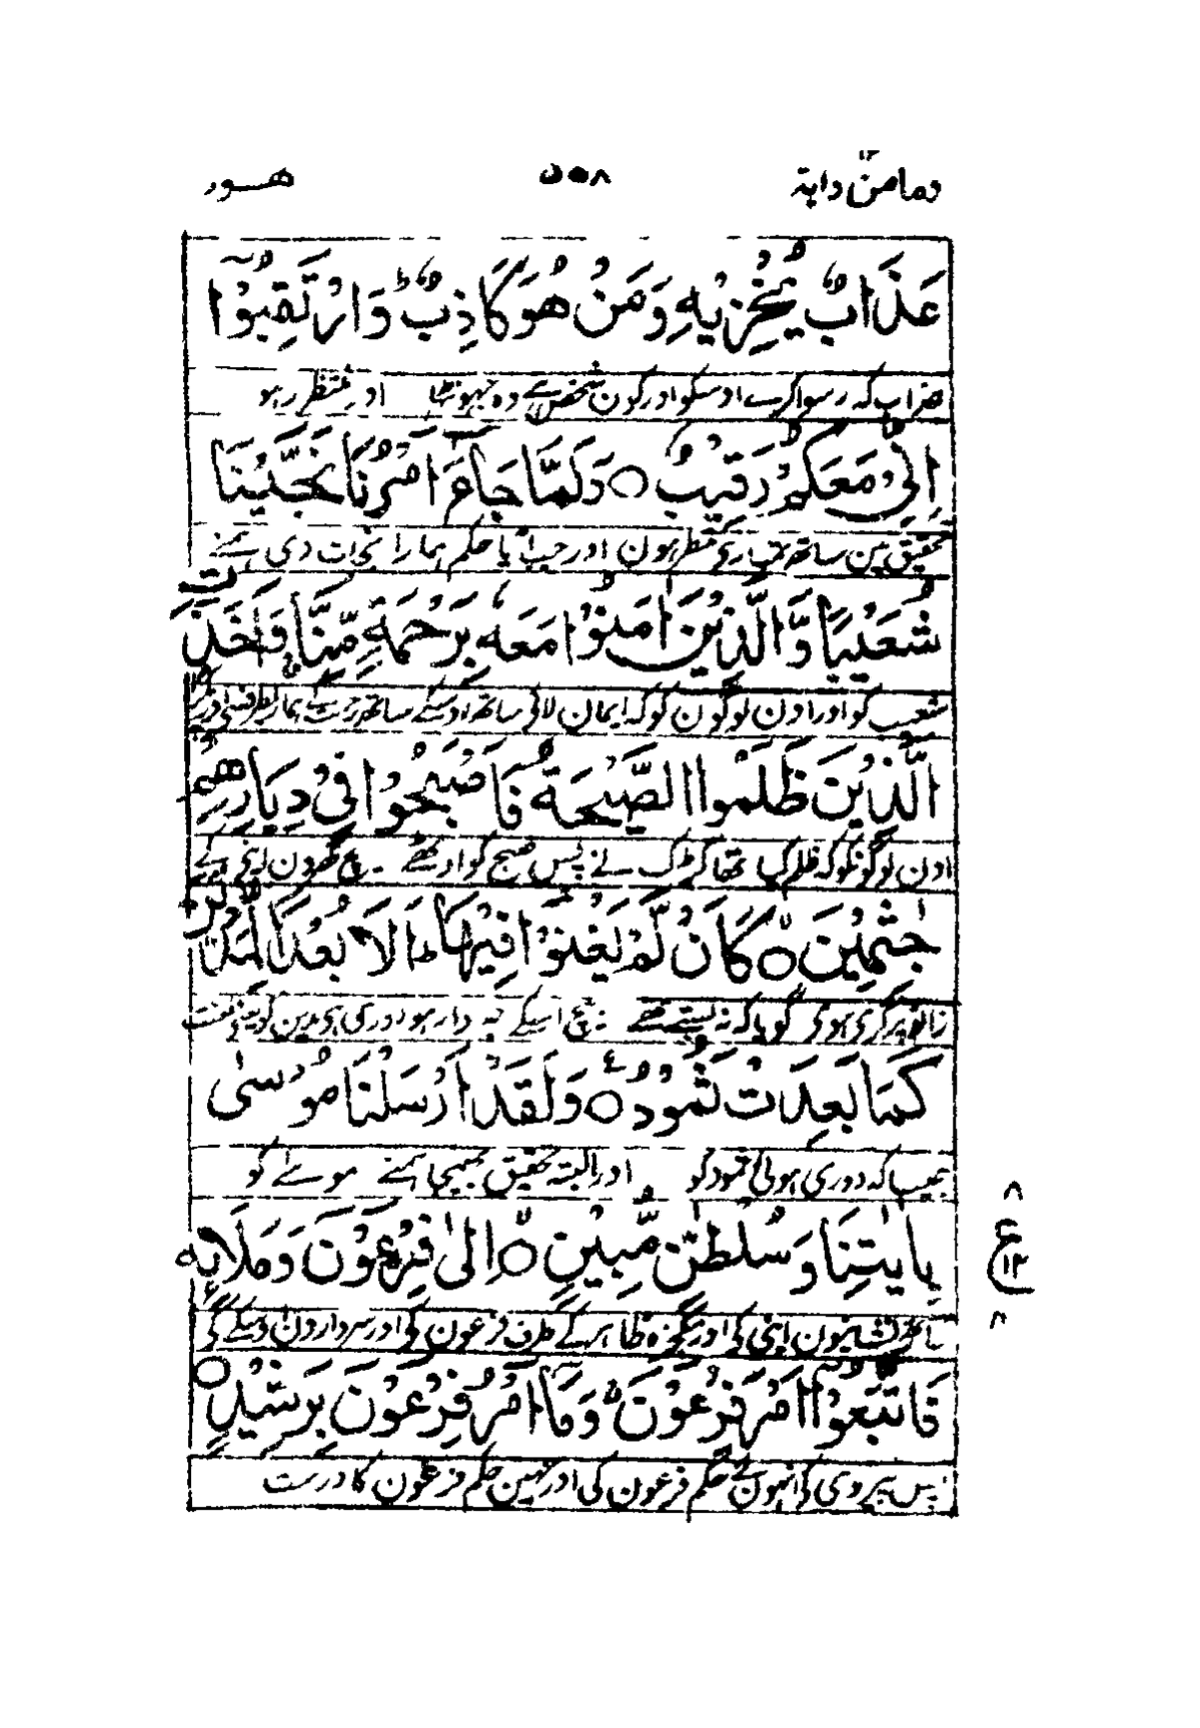 ومامن دابة ١٢ ۵۵۸ هود
عَذَابٌ يُّخْزِيْهِ وَمَنْ هُوَ كَاذِبٌ ؕ وَارْتَقِبُوْٓا
عذاب کہ رسوا کرے اوسکو اور کون شخص ہے وہ جھوٹا اور منتظر رہو
اِنِّىْ مَعَكُمْ رَقِيْبٌ ○ وَلَمَّا جَآءَ اَمْرُنَا نَجَّيْنَا
تحقیق مین ساتھ تمہارے منتظر ہون اور جب آیا حکم ہمارا نجات دی ہمنے
شُعَيْبًا وَّالَّذِيْنَ اٰمَنُوْا مَعَهٗ بِرَحْمَةٍ مِّنَّا وَاَخَذَتِ
شعیب کو اور اون لوگون کو کہ ایمان لائے ساتھ اوسکے ساتھ رحمت کے ہمارے طرف سے اور
الَّذِيْنَ ظَلَمُوا الصَّيْحَةُ فَاَصْبَحُوْا فِىْ دِيَارِهِمْ
اون لوگونکو کہ ظلم کیا تھا کڑک نے پس صبح کو اوٹھے بیچ گھرون اپنے کے
جٰثِمِيْنَ ○ۙ كَاَنْ لَّمْ يَغْنَوْا فِيْهَا ؕ اَلَا بُعْدًا لِّمَدْيَنَ
زانو پر گرے ہوئے گویا کہ نہ بستے تھے بیچ اسکے خبردار ہو دوری ہو مدین کو
كَمَا بَعِدَتْ ثَمُوْدُ ○ؑ وَلَقَدْ اَرْسَلْنَا مُوْسٰى
جیسا کہ دوری ہوئی ثمود کو اور البتہ تحقیق بھیجا ہمنے موسےٰ کو
بِاٰيٰتِنَا وَسُلْطٰنٍ مُّبِيْنٍ ○ۙ اِلٰى فِرْعَوْنَ وَمَلَا۟ئِهٖ
ساتھ نشانیون اپنی کی اور معجزہ ظاہر کے طرف فرعون کی اور سردارون اوسکے کی
٨
ع
١٢
٨
فَاتَّبَعُوْٓا اَمْرَ فِرْعَوْنَ ۚ وَمَآ اَمْرُ فِرْعَوْنَ بِرَشِيْدٍ ○
پس پیروی کی انہون نے حکم فرعون کی اور نہین حکم فرعون کا درست